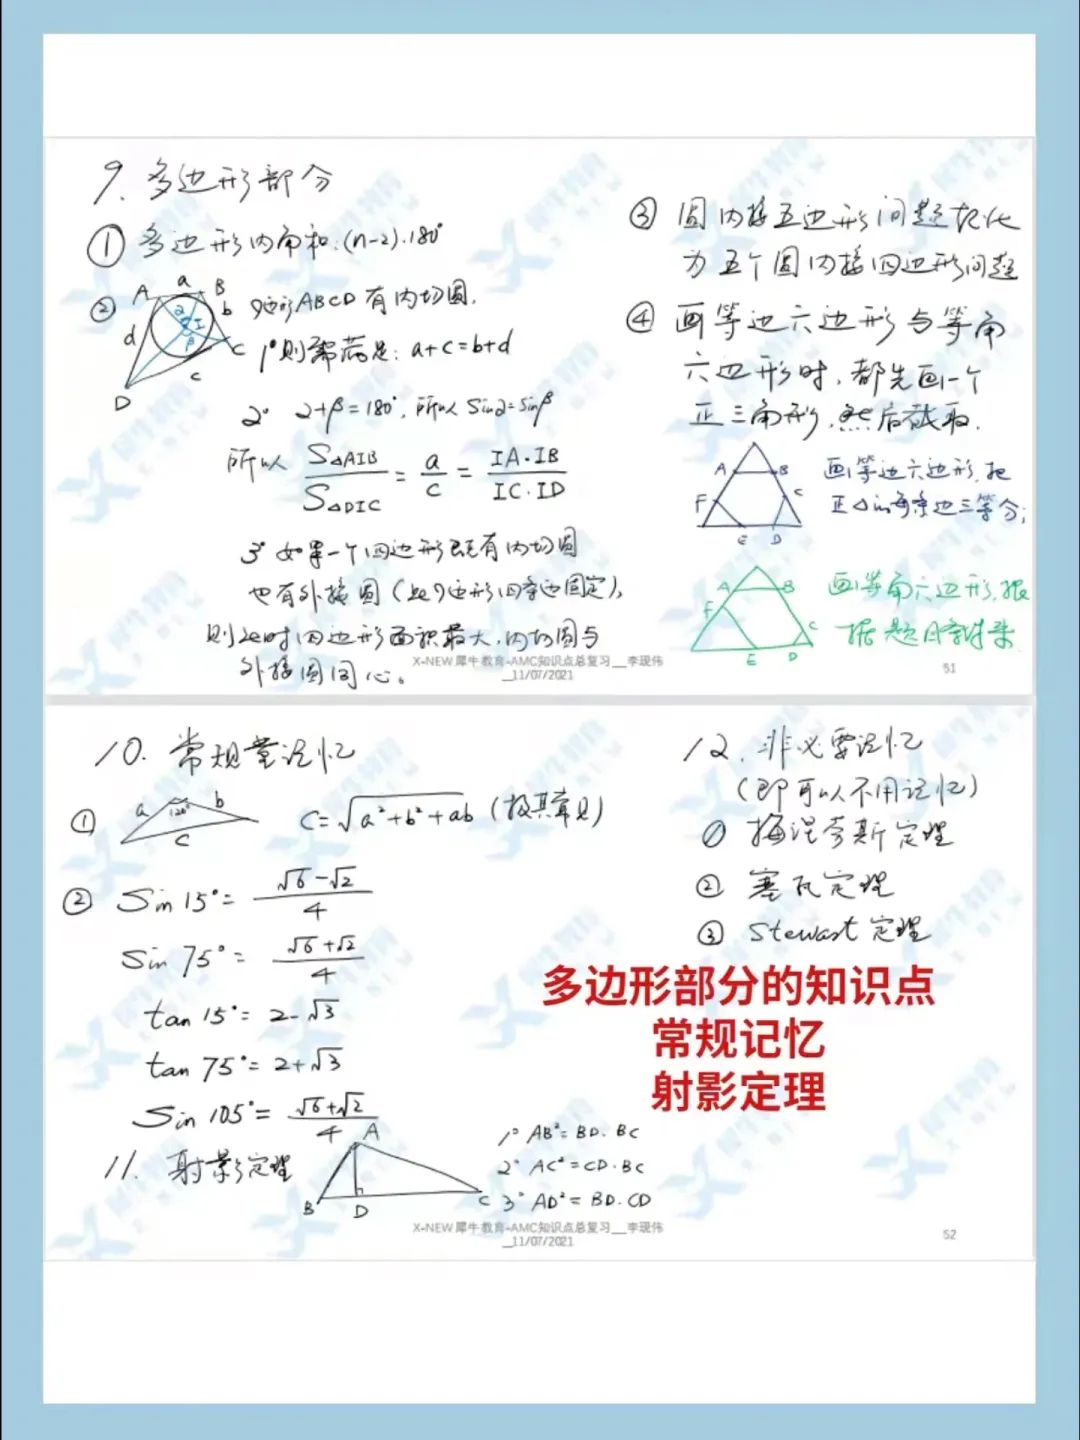 9. 多边形部分
① 多边形内角和:(n-2)·180°
②
A a B
b
d
α I
β
C
c
D
四边形ABCD有内切圆.
1°则需满足: a+c=b+d
2° α+β=180°, 所以 Sinα=Sinβ
所以 S△AIB/S△DIC = a/c = IA·IB/IC·ID
3° 如果一个四边形既有内切圆
也有外接圆(此四边形四条边固定),
则此时四边形面积最大,内切圆与
外接圆同心。
③ 圆内接五边形问题转化
为五个圆内接四边形问题
④ 画等边六边形与等角
六边形时, 都先画一个
正三角形, 然后截取.
A B
F C
E D
画等边六边形, 把
正△的每条边三等分;
A B
F
C
E D
画等角六边形, 根
据题目条件来
X-NEW 犀牛教育-AMC知识点总复习__李现伟
__11/07/2021
51
10. 常规童记忆
①
a 120° b
c
C=√a²+b²+ab (极其常见)
② Sin 15°= √6-√2/4
Sin 75°= √6+√2/4
tan 15°= 2-√3
tan 75°= 2+√3
Sin 105°= √6+√2/4
11. 射影定理
A
B D C
1° AB²=BD·BC
2° AC²=CD·BC
3° AD²=BD·CD
12. 非必要记忆
(即可以不用记忆)
① 梅涅劳斯定理
② 塞瓦定理
③ Stewart 定理
多边形部分的知识点
常规记忆
射影定理
X-NEW 犀牛教育-AMC知识点总复习__李现伟
__11/07/2021
52